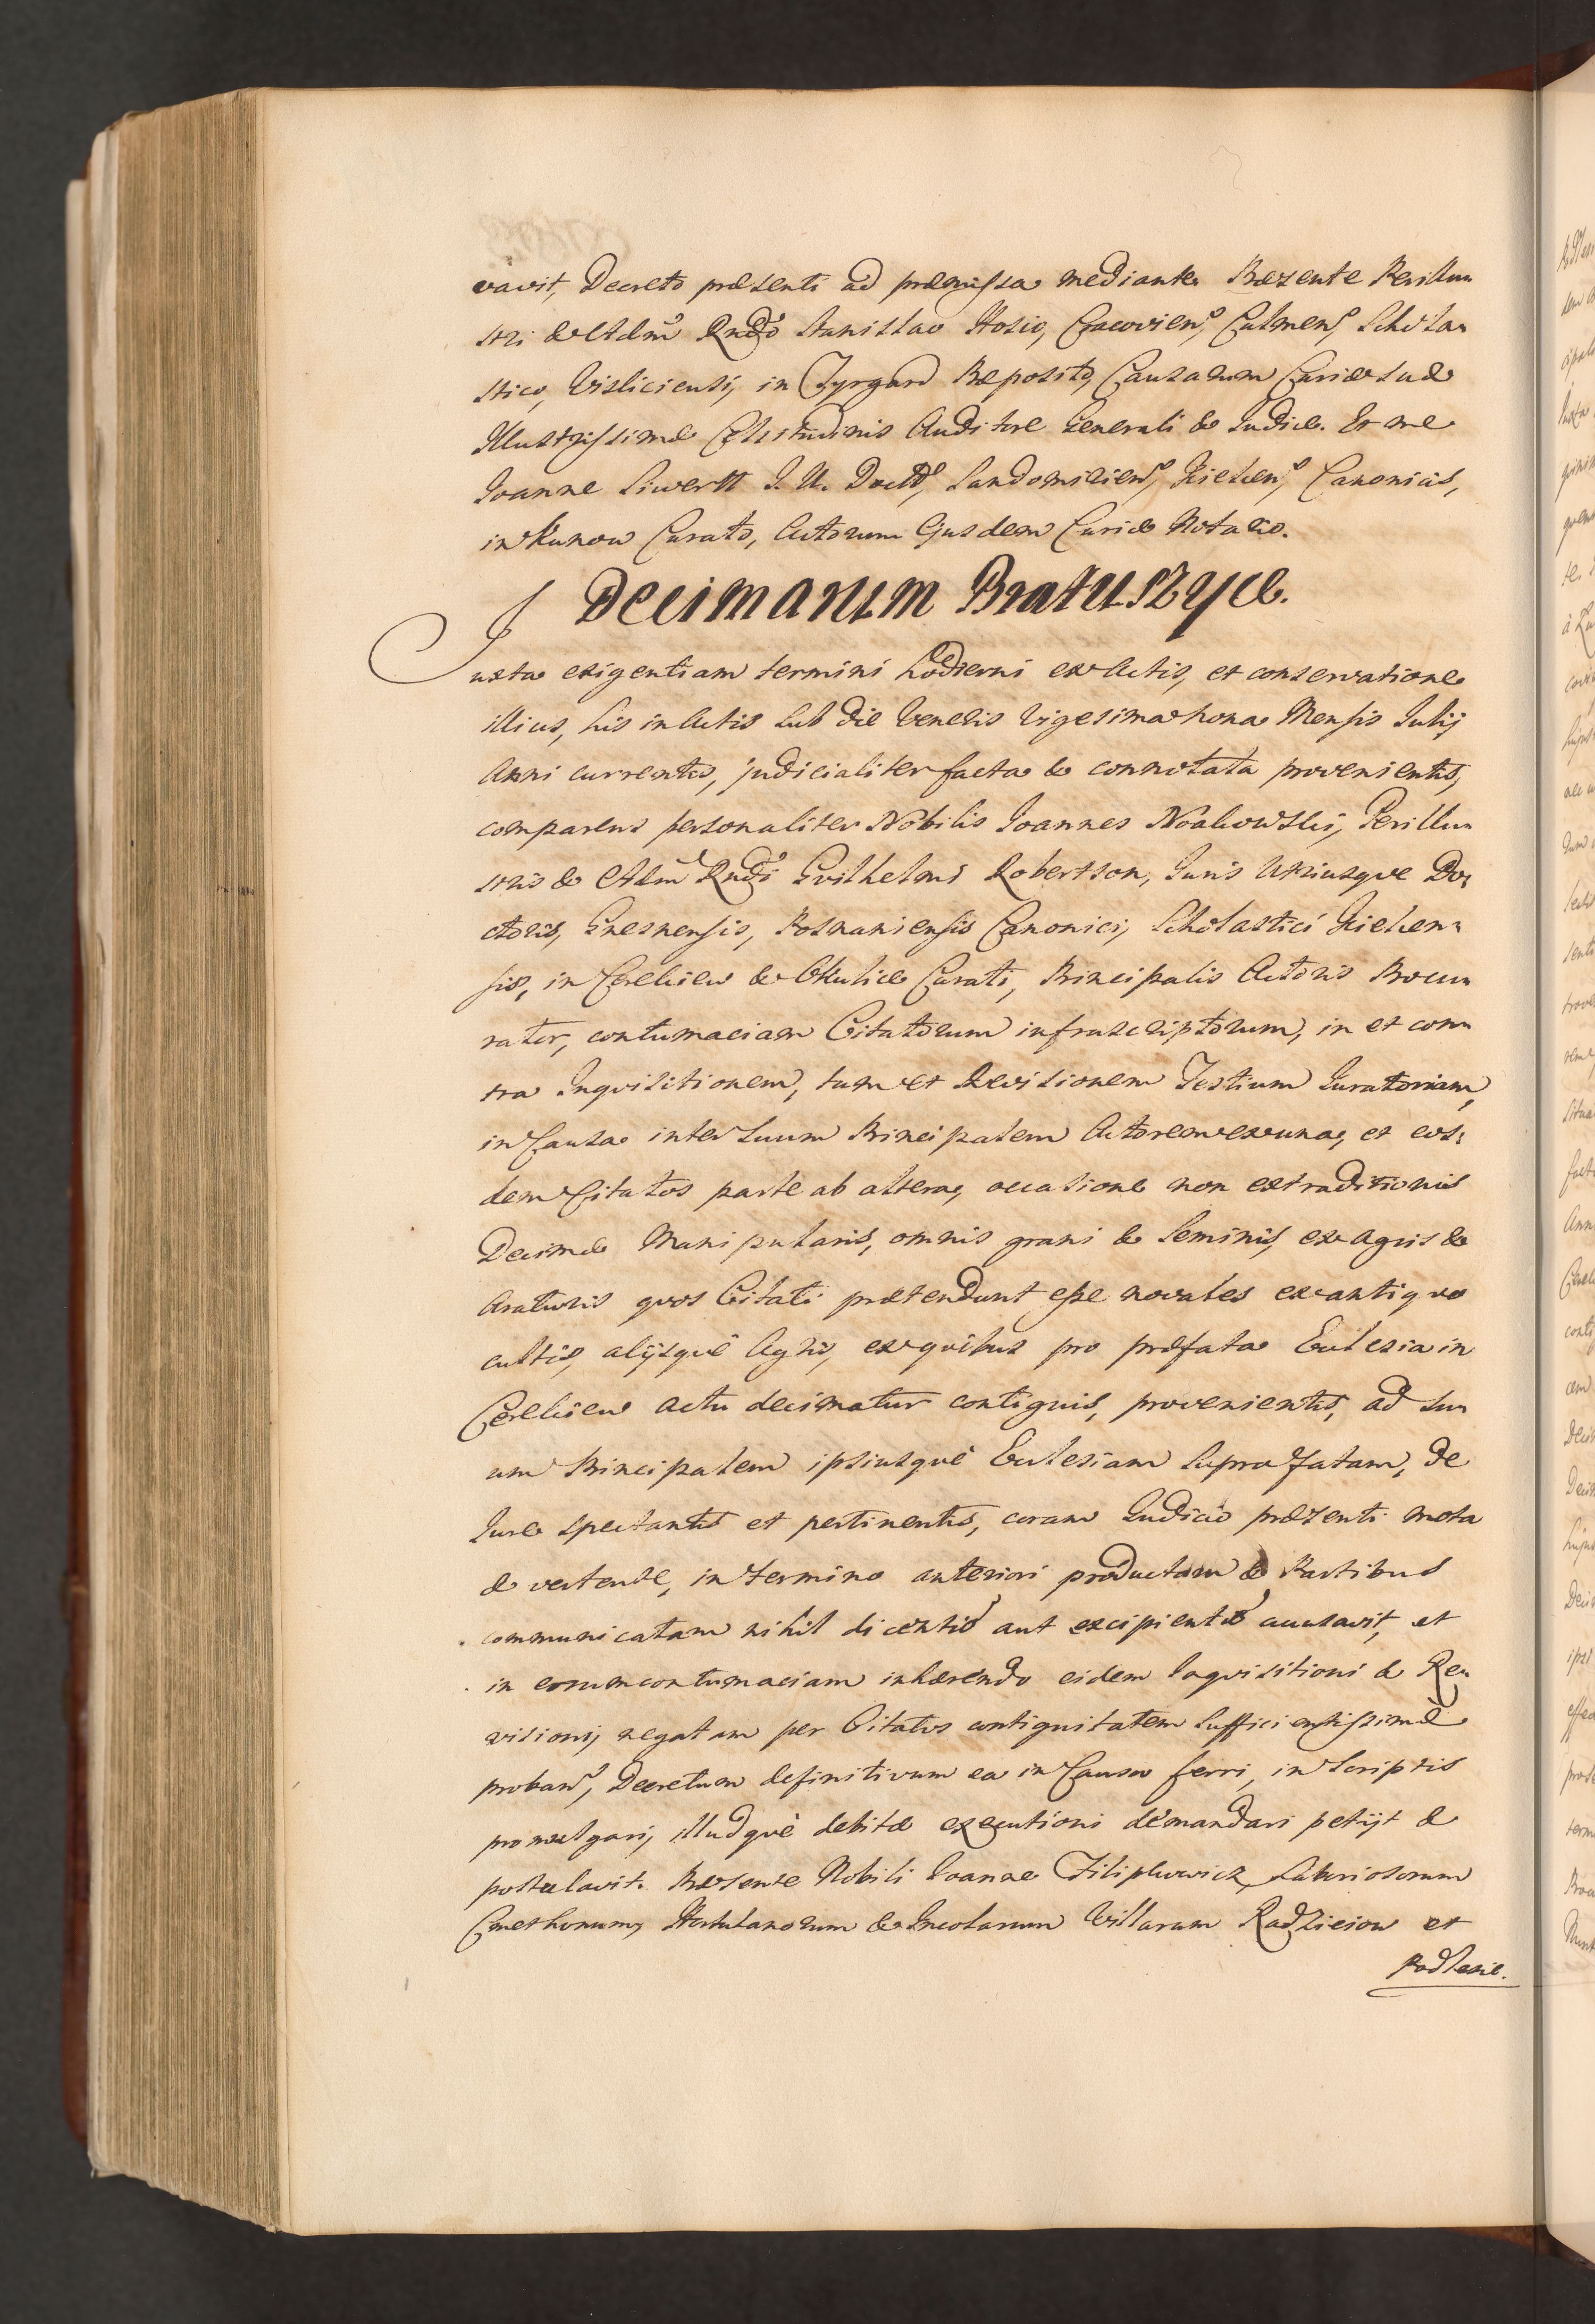 vavit, Decreto præsenti ad præmissa mediante. Præsente Perillu-
stri & Adm̄ Rndo Stanislao Hosio, Cracovien, Culmen, Schola-
stico, Visliciensi, in Zyrgard Præposito, Causarum Curiæ suæ
Illustrissimæ Celsitudinis Auditore Generali & Judice. Et me
Joanne Siwertt J. U. Doctt, Sandomirien, Kielcen, Canonicis,
in Kunow Curato, Actorum Ejusdem Curiæ Notario.
Decimarum Bratuszyce.
Juxta exigentiam termini hodierni ex Actis, et conservatione
illius, his in Actis sub die Veneris Vigesima nona Mensis Julij
Anni currentis, judicialiter facta & connotata provenientis,
comparens personaliter Nobilis Joannes Noakowski, Perillu-
stris & Adm̄ Rndi Gvilhelmi Robertson, Juris Utriusque Do-
ctoris, Gnesnensis, Posnaniensis Canonici, Scholastici Kielcen-
sis, in Cerekiew & Okulice Curati, Principalis Actoris Procu-
rator, contumaciam Citatorum infrascriptorum, in et con-
tra Inqvisitionem, tum et Revisionem Testium Juratoriam,
in Causa inter suum Principalem Actorem ex una, et eos-
dem Citatos parte ab altera, occasione non extraditionis
Decimæ Manipularis, omnis grani & seminis, ex agris &
Araturis qvos Citati prætendunt esse novales ex antiqvo
cultis, alijsqvè Agris, ex qvibus pro præfata Ecclesia in
Cerekiew actu decimatur contiguis, provenientis, ad su-
um Principalem ipsiusqvè Ecclesiam suprafatam, de
Jure spectantis et pertinentis, coram Judicio præsenti mota
& vertente, in termino anteriori productam & Partibus
communicatam nihil dicentis aut excipientis accusavit, et
in eorum contumaciam inhærendo eidem Inqvisitioni & Re-
visioni, negatam per Citatos contiguitatem sufficientissimè
proban, Decretum definitivum ea in Causa ferri, in scriptis
promulgari, illudqvè debitæ executioni demandari petijt &
postulavit. Præsente Nobili Joanne Filipkowicz, Laboriosorum
Cmethonum, Hortulanorum & Incolarum Villarum Radzieiow et
Podlesie.